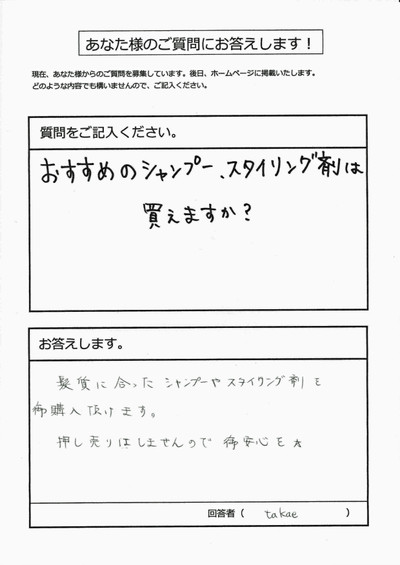 あなた様のご質問にお答えします！
現在、あなた様からのご質問を募集しています。後日、ホームページに掲載いたします。
どのような内容でも構いませんので、ご記入ください。
質問をご記入ください。
おすすめのシャンプー、スタイリング剤は
買えますか?
お答えします。
髪質に合ったシャンプーやスタイリング剤を
御購入頂けます。
押し売りはしませんので御安心を★
回答者（ takae ）